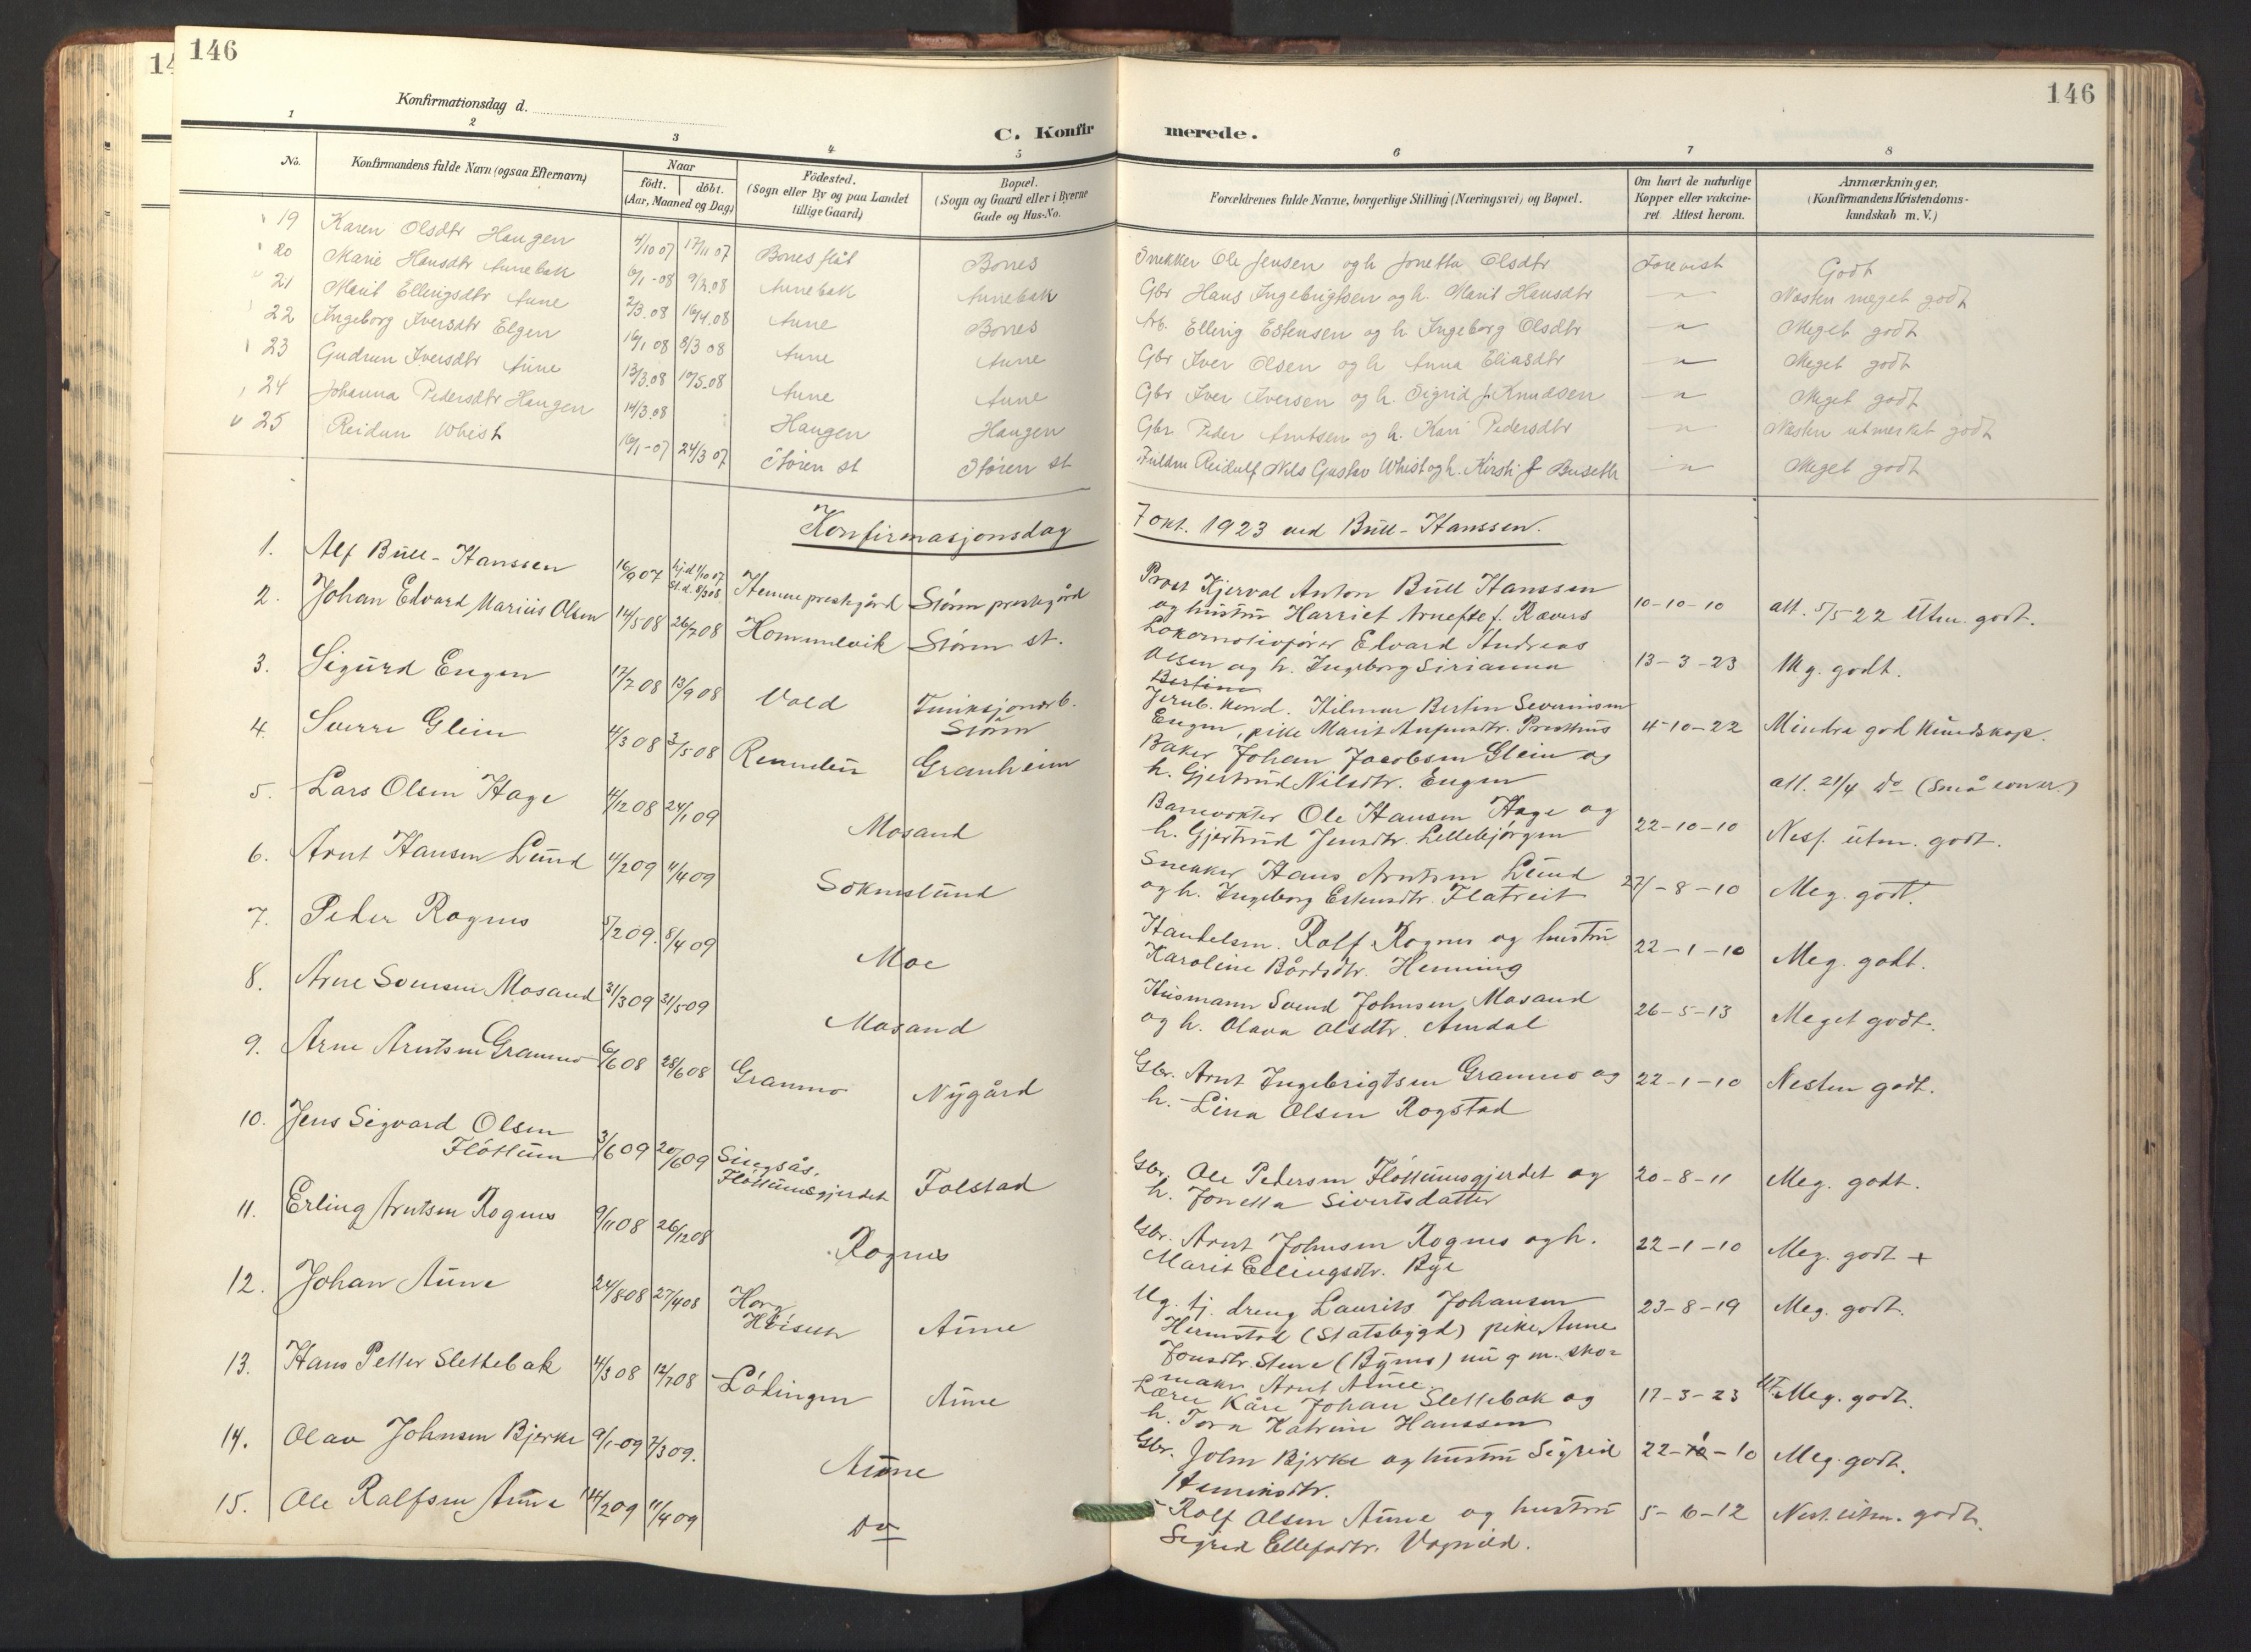 146
146
14
Konfirmationsdag d.
C. Konfirmerede.
1 2 3 4 5 6 7 8
No. Konfirmandens fulde Navn (ogsaa Efternavn) Naar födt. döbt. (Aar, Maaned og Dag) Födested. (Sogn eller By og paa Landet tillige Gaard) Bopæl. (Sogn og Gaard eller i Byerne Gade og Hus-No.
Forældrenes fulde Navne, borgerlige Stilling (Næringsvei) og Bopæl. Om havt de naturlige Kopper eller vakcineret. Attest herom. Anmærkninger. (Konfirmandens Kristendomskundskab m. V.)
19 Karen Olsdtr Haugen 4/10 07 17/11 07 Bonesflåt Bones Snekker Ole Jensen og h Jonetta Olsdtr Forevist Godt
20 Marie Hansdtr Aunebak 6/1-08 9/2.08 Aunebak Aunebak Gbr Hans Ingebrigtsen og h. Marit Hansdtr " Næsten meget godt
21 Marit Ellingsdtr Aune 2/3.08 16/4.08 Aune Bones Arb. Elling Estensen og h Ingeborg Olsdtr " Meget godt
22 Ingeborg Iversdtr Elgen 16/1 08 8/3 08 Aune Aune Gbr Iver Olsen og h Anna Eliasdtr " Meget godt
23 Gudrun Iversdtr Aune 13/3.08 10/5.08 Aune Aune Gbr Iver Iversen og h. Sigrid f. Knudsen " Meget godt
24 Johanna Pedersdtr Haugen 14/3.08 Haugen Haugen Gbr Peder Arntsen og h. Kari Pedersdtr " Næsten utmerket godt
25 Reidun Whist 16/1-07 24/3 07 Støren st Støren st Reidulf Nils Gustav Whist og h. Kirsti f Buseth " Meget godt
Konfirmasjonsdag 7 okt. 1923 ved Bull-Hanssen.
1. Alf Bull-Hanssen 16/9 07 hj.d 1/10 07 St.d. 8/3 08 Hemne prestegård Støren prestegård
Prost Kjerval Anton Bull Hanssen
og hustru Harriet f. Rævers 10-10-10 att. 5/5 22 Utm. godt.
2. Johan Edvard Marius Olsen 14/5 08 26/7 08 Hommelvik Støren st.
Lokomotivfører Edvard Andreas
Olsen og h. Ingeborg Sirianna 13-3-23 Mg. godt.
Bertine
3. Sigurd Engen 17/7 08 13/9 08 Vold Støren
Jernb. Hilmar Bertin Severinsen
Engen, pike Marit 4-10-22 Mindre god kundskap.
4. Sverre Glein 4/3 08 3/5 08 Granheim
Baker Johan Jacobsen Glein og
h. Gjertrud Nilsdtr. Engen att. 21/4 do
5. Lars Olsen Hage 4/12 08 24/1 09 Mosand
Banevokter Ole Hansen Hage og
h. Gjertrud Jensdtr. Lillebjørgen 22-10-10 Nest. utm. godt.
6. Arnt Hansen Lund 4/2 09 11/4 09 Soknslund
Snekker Hans Arntsen Lund
og h. Ingeborg Estensdtr. Flatreit 27/-8-10 Meg. godt.
7. Peder Rognes 5/2 09. 8/4 09 Moe
Handelsm. Rolf Rognes og hustru
Karoline Bårdsdtr. Henning 22-1-10 Meg. godt.
8. Arne Svensen Mosand 31/3 09 31/5 09 Mosand
Husmann Svend Johnsen Mosand
og h. Olava Olsdtr. Amdal 26-5-13 Meget godt.
9. Arne Arntsen Grammo 6/6 08 28/6 08 Grammo Nygård
Gbr. Arnt Ingebrigtsen Grammo og
h. Lina Olsen Rogstad 22-1-10 Nesten godt.
10. Jens Sigvard Olsen
Fløttum 3/6 09 20/6 09 Singsås, Fløttumsgjerdet Folstad
Gbr. Ole Pedersen Fløttumsgjerdet og
h. Jonetta Sivertsdatter 20-8-11 Meg. godt.
11. Erling Arntsen Rognes 9/11 08 26/12 08 Rognes
Gbr. Arnt Johnsen Rognes og h.
Marit Ellingsdtr. Bye 22-1-10 Meg. godt +
12. Johan Aune 24/8 08 27/4 08 Horg Aune
Ug. tj. dreng Laurits Johansen
Hermstad (Statsbygd) pike Anne
Jonsdtr. Stene (Bynes) nu g. m. sko-
maker Arnt Aune. 23-8-19 Meg. godt.
13. Hans Petter Slettebak 4/3 08 12/7 08 Lødingen Aune
Lærer Kåre Johan Slettebak og
h. Tora Katrine Hanssen 17-3-23 Meg. godt.
14. Olav Johnsen Bjerke 9/1-09 7/3 09. Aune
Gbr. John Bjerke og hustru Sigrid
Henriksdtr. 22-1-10 Meg. godt.
15. Ole Rolfsen Aune 14/2 09 11/4 09 Do
Rolf Olsen Aune og hustru
Sigrid Ellefsdtr. Vagnild. 5-6-12 Nest. utm. godt.